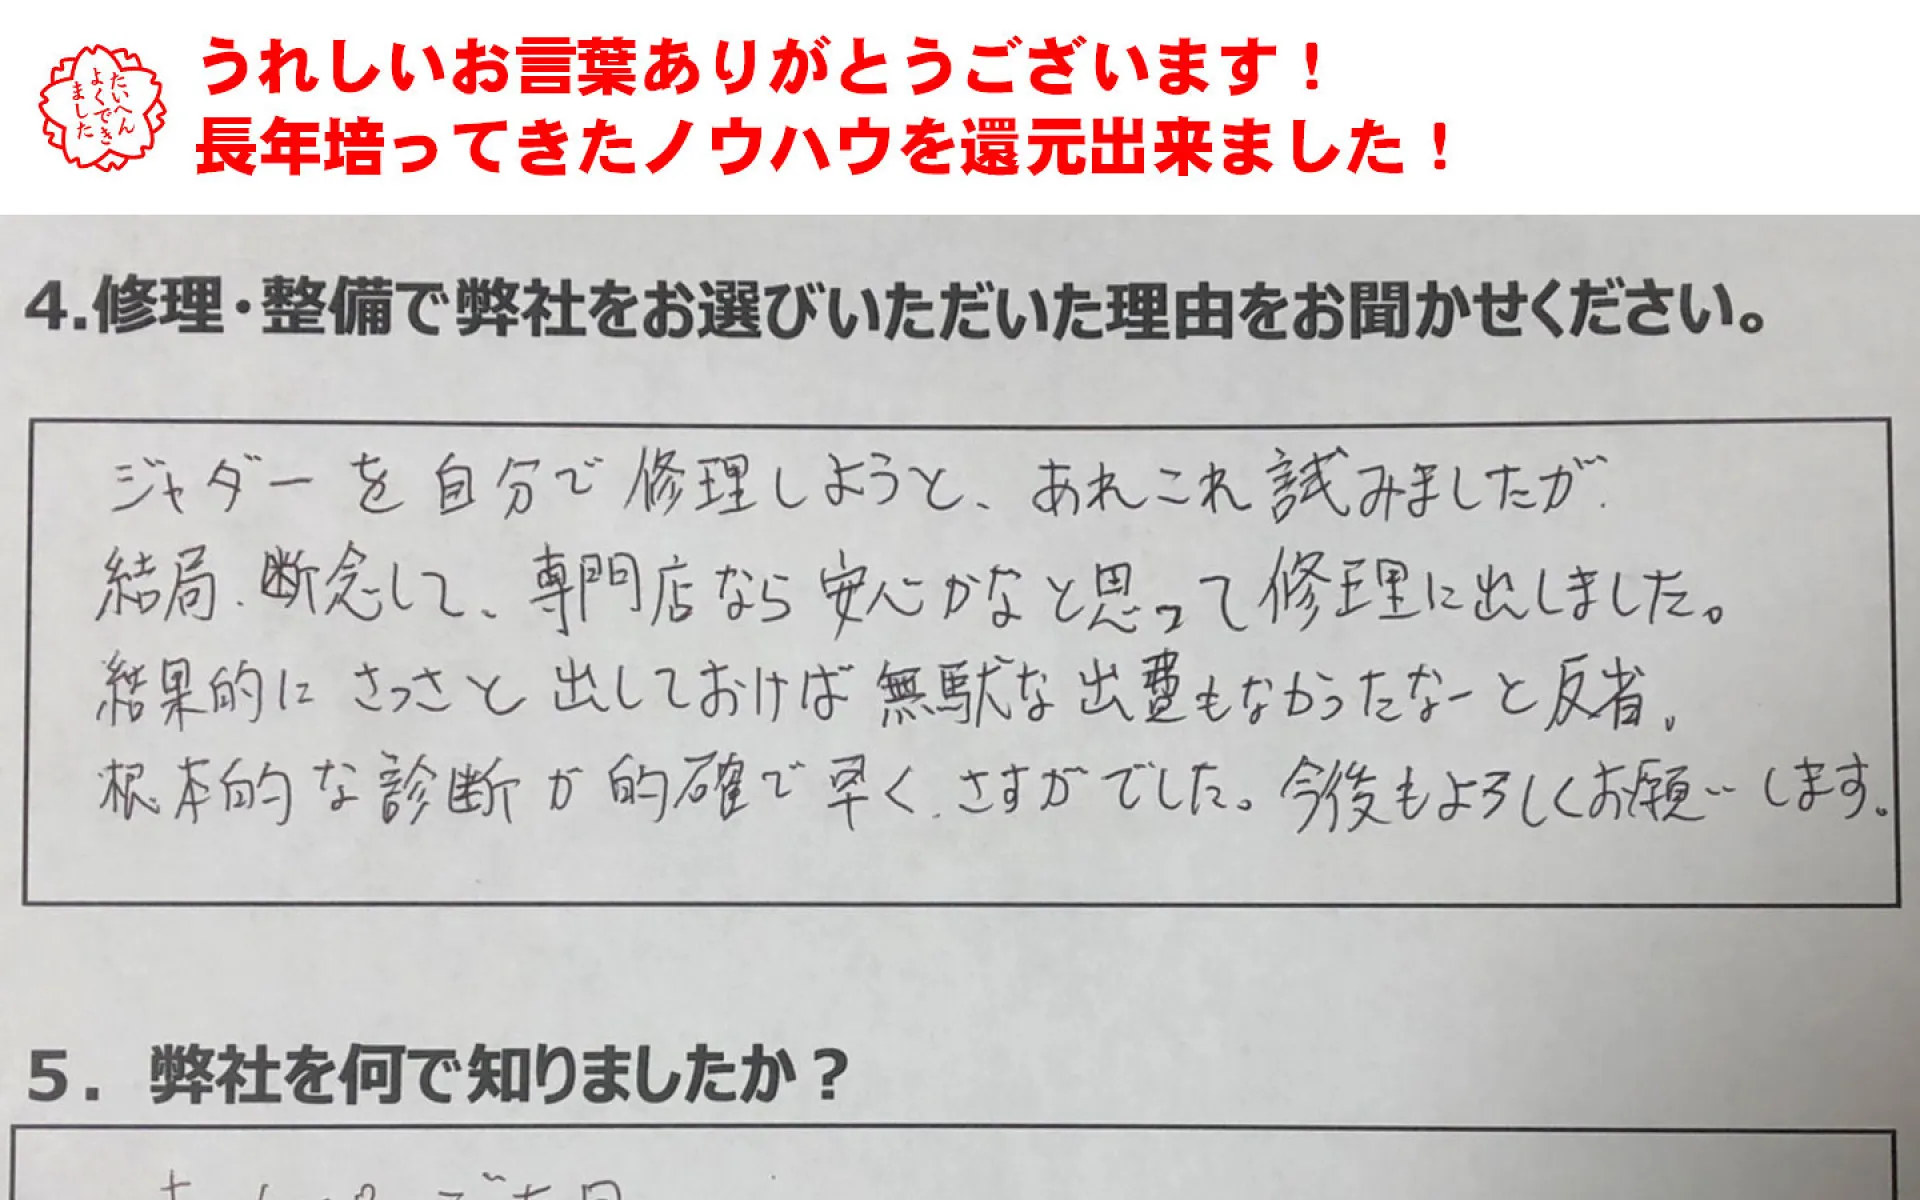 たいへん
よくでき
ました
うれしいお言葉ありがとうございます！
長年培ってきたノウハウを還元出来ました！
4.修理・整備で弊社をお選びいただいた理由をお聞かせください。
ジャダーを自分で修理しようと、あれこれ試みましたが、
結局、断念して、専門店なら安心かなと思って修理に出しました。
結果的にさっさと出しておけば無駄な出費もなかったなーと反省。
根本的な診断が的確で早く、さすがでした。今後もよろしくお願いします。
5．弊社を何で知りましたか？